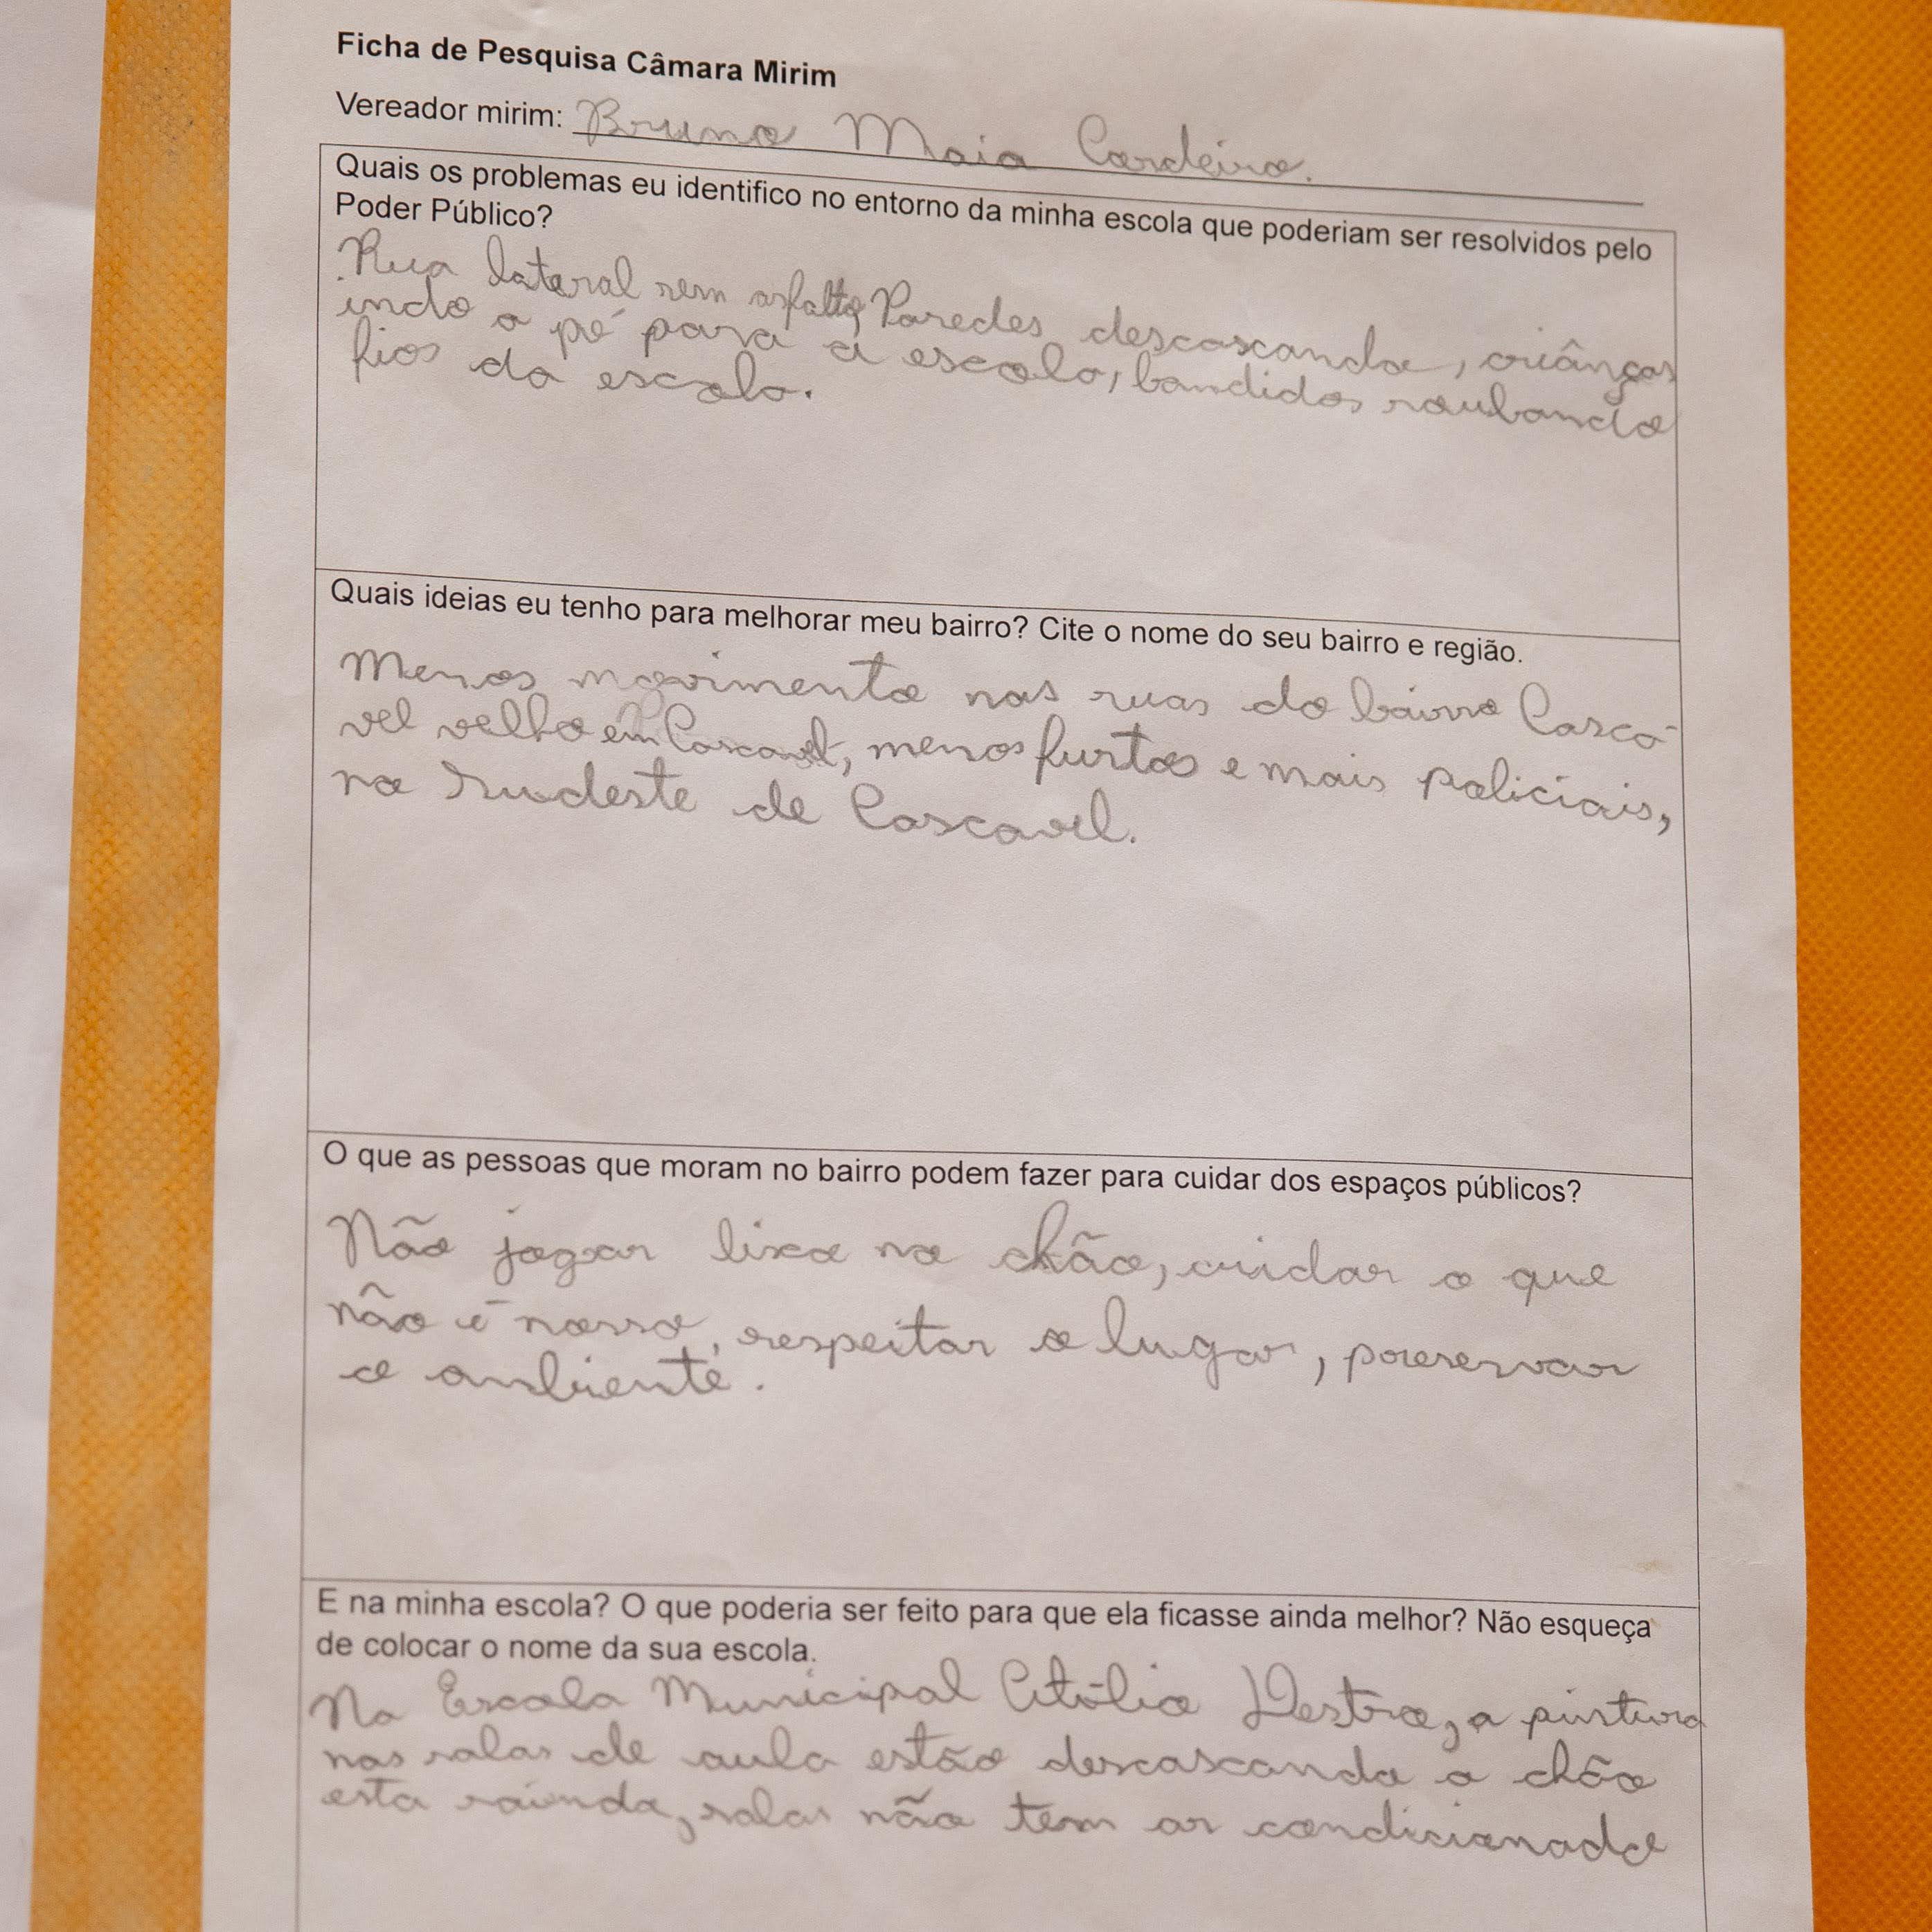 Ficha de Pesquisa Câmara Mirim
Vereador mirim: Bruno Maia Cordeiro.
Quais os problemas eu identifico no entorno da minha escola que poderiam ser resolvidos pelo
Poder Público?
Rua lateral sem asfalto, Paredes descascando, criânças
indo a pé para a escola, bandidos roubando
fios da escola.
Quais ideias eu tenho para melhorar meu bairro? Cite o nome do seu bairro e região.
Menos movimento nas ruas do bairro Casca-
vel velho em Cascavel, menos furtos e mais policiais,
no Sudeste de Cascavel.
O que as pessoas que moram no bairro podem fazer para cuidar dos espaços públicos?
Não jogar lixo no chão, cuidar o que
não é nosso, respeitar o lugar, preservar
o ambiente.
E na minha escola? O que poderia ser feito para que ela ficasse ainda melhor? Não esqueça
de colocar o nome da sua escola.
Na Escola Municipal a pintura
nas salas de aula estão descascando o chão
esta saindo, salas não tem ar condicionado